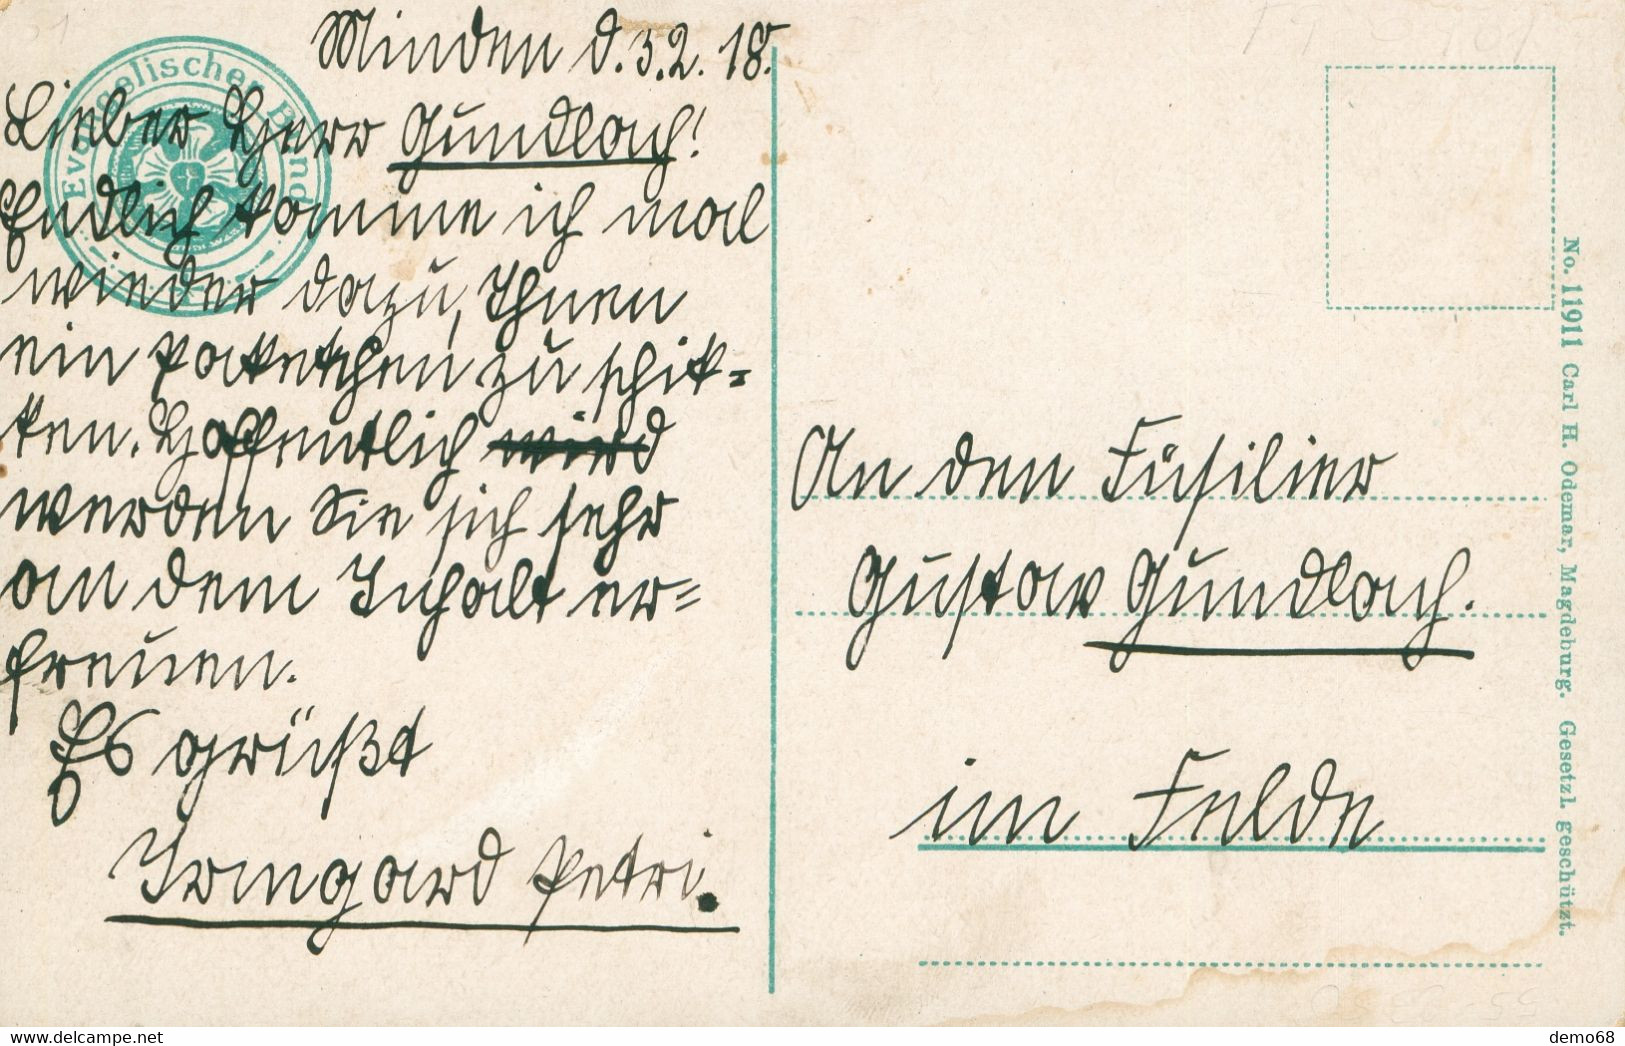 Minden d. 3.2.18.
Lieber Herr Gundlach!
Endlich komme ich mal
wieder dazu, Ihnen
ein Paketchen zu schik-
ken. Hoffentlich wird
werden Sie sich sehr
an dem Inhalt er-
freuen.
Es grüßt
Irmgard Petri.
Evangelischer Bund
An den Füsilier
Gustav Gundlach.
im Felde
No. 11911 Carl H. Odemar, Magdeburg. Gesetzl. geschützt.
demo68